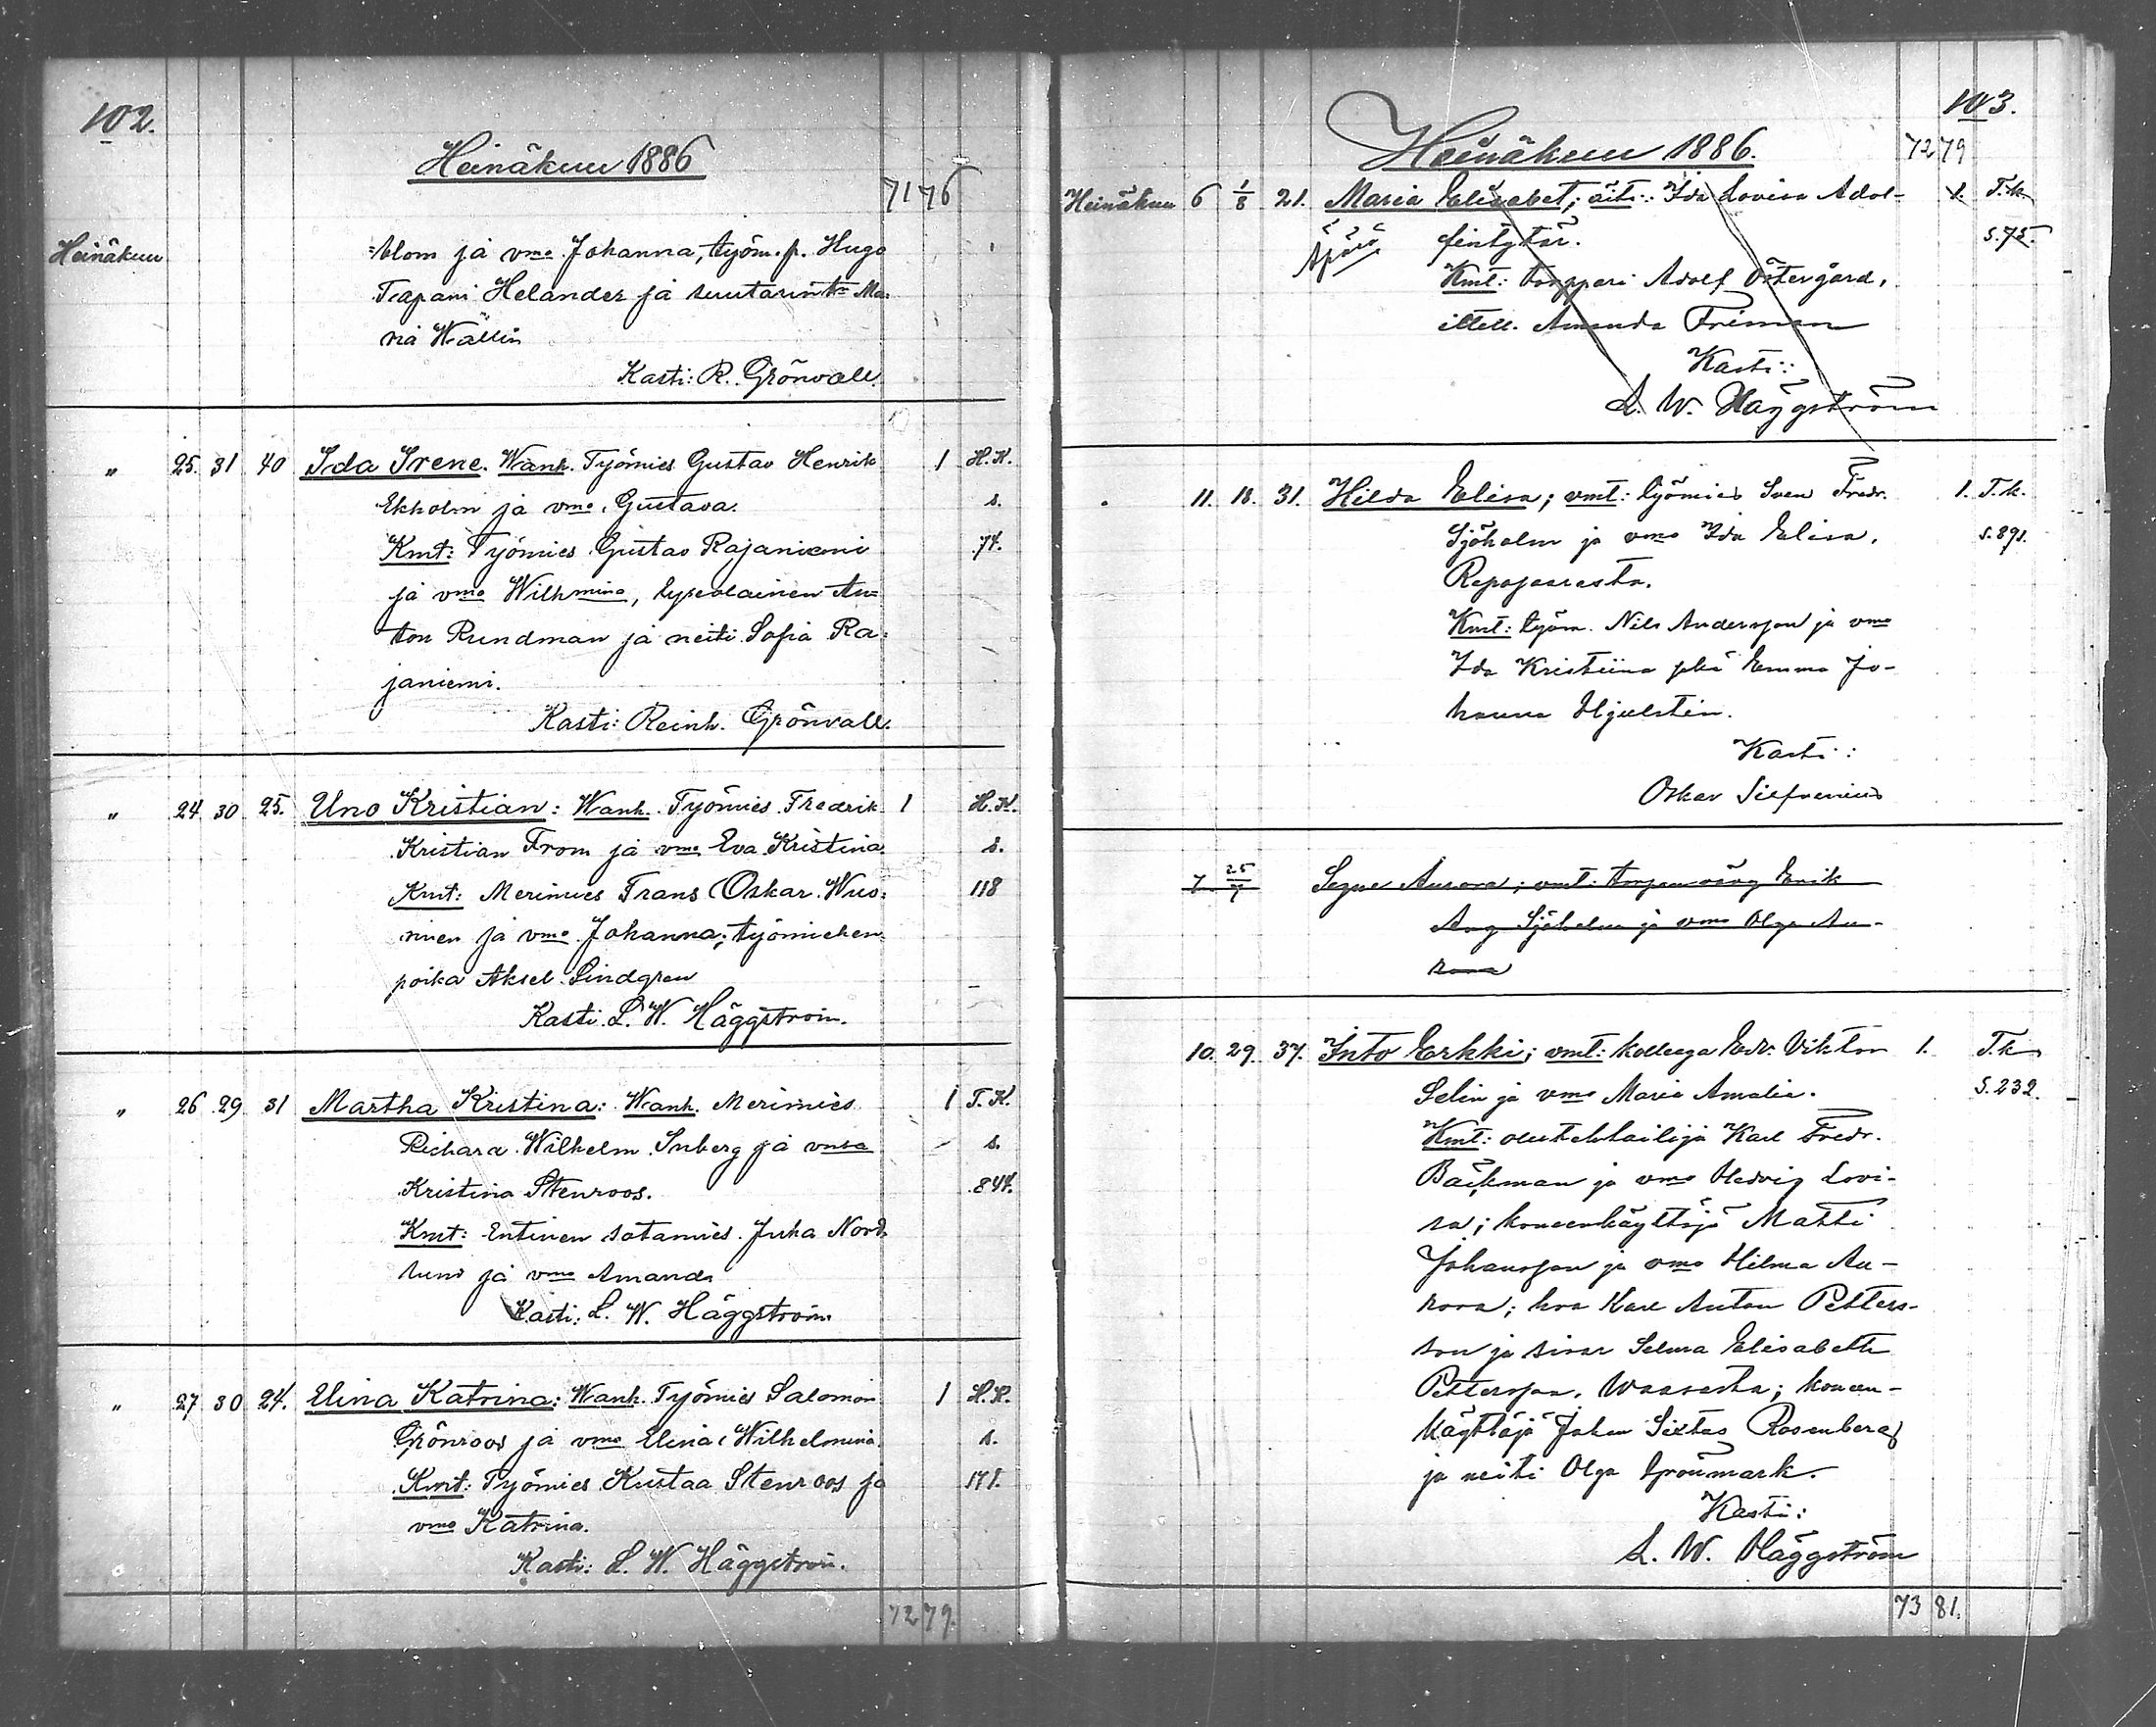 102.
Heinäkuu 1886
71 76
Heinäkuu
=blom ja vmo Johanna, työm. p. Hugo
Tapani Helander ja suutarin tr Ma=
ria Wallin
Kasti: R. Grönvall.
" 25. 31 40 Ida Irene. Wanh. Työmies Gustav Henrik 1 H.K.
Ekholm ja vmo Gustava. s.
Kmt: Työmies Gustav Rajaniemi 74.
ja vmo Wilhmina, An=
ton Rundman ja neiti Sofia Ra=
janiemi.
Kasti: Reinh. Grönvall.
" 24 30 25. Uno Kristian: Wanh. Työmies Fredrik 1 H.K.
Kristian From ja vmo Eva Kristina. s.
Kmt: Merimies Frans Oskar Wuo= 118
rinen ja vmo Johanna; työmiehen
poika Aksel Lindgren
Kasti. L. W. Häggström.
" 26 29 31 Martha Kristina: Wanh. Merimies 1 T.K.
Richard Wilhelm Inberg ja vmsa s.
Kristina Stenroos. 844.
Kmt: Entinen sotamies Juha Nord
lund ja vmo Amanda
Kasti: L. W. Häggström
" 27 30 24. Elina Katrina: Wanh. Työmies Salomon 1 H.K.
Grönroos ja vmo Elina Wilhelmina s.
Kmt: Työmies Kustaa Stenroos ja 171.
vmo Katrina.
Kasti: L. W. Häggström.
72 79.
103.
Heinäkuu 1886.
72 79
Heinäkuu 6 1/8 21. Maria Elisabet; äiti: Ida Lovisa Adol- 1. T.k.
Äpärä fintytär. s.75.
Kmt: torppari Adolf Östergård,
ittell. Amanda Friman
Kasti:
L. W. Häggström
11. 18. 31. Hilda Elisa; vmt: työmies Sven Fredr. 1. T.k.
Sjöholm ja vmo Ida Elisa, s.891.
Reposaaresta.
Kmt: työm. Nils Andersson ja vmo
Ida Kristiina sekä Emma Jo-
hanna Hjulstén.
Kasti:
Oskar Silfvenius
7 25/7 Signe Aurora; vmt: Erik
Aug Sjöholm ja vmo Olga Au-
rora
10. 29. 37. Into Erkki; vmt: kolleega Edv. Viktor 1. T.k
Selin ja vmo Maria Amalia. s.232.
Kmt: oluttehtailija Karl Fredr.
Bäckman ja vmo Hedvig Lovi-
sa; koneenkäyttäjä Matti
Johansson ja vmo Hilma Au-
rora; hra Karl Anton Petters-
son ja sisar Selma Elisabeth
Pettersson, Waasasta; koneen-
käyttäjä Johan Sixtus Rosenberg
ja neiti Olga Grönmark.
Kasti:
L. W. Häggström
73 81.